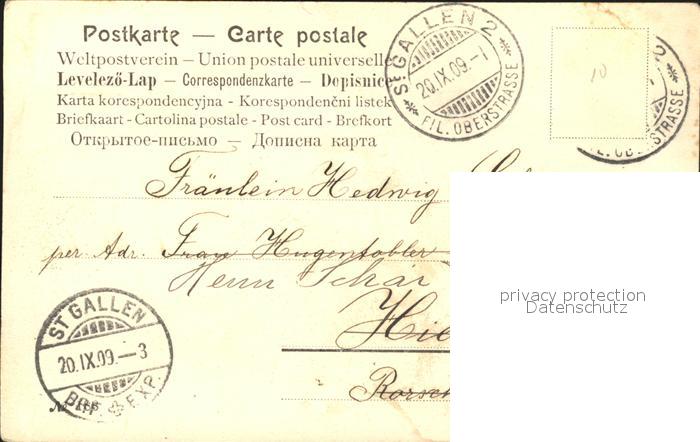 Postkarte — Carte postale
Weltpostverein — Union postale universelle
Levelező-Lap — Correspondenzkarte — Dopisnice
Karta korespondencyjna - Korespondenční listek
Briefkaart - Cartolina postale - Post card - Brefkort
Открытое-письмо — Дописна карта
ST GALLEN 2
20.IX.09.-1
FIL. OBERSTRASSE
10
Fräulein Hedwig
per Adr. Frau Hugentobler
Herrn Schär
privacy protection
Datenschutz
ST GALLEN
20.IX.09.-3
BRF. EXP.